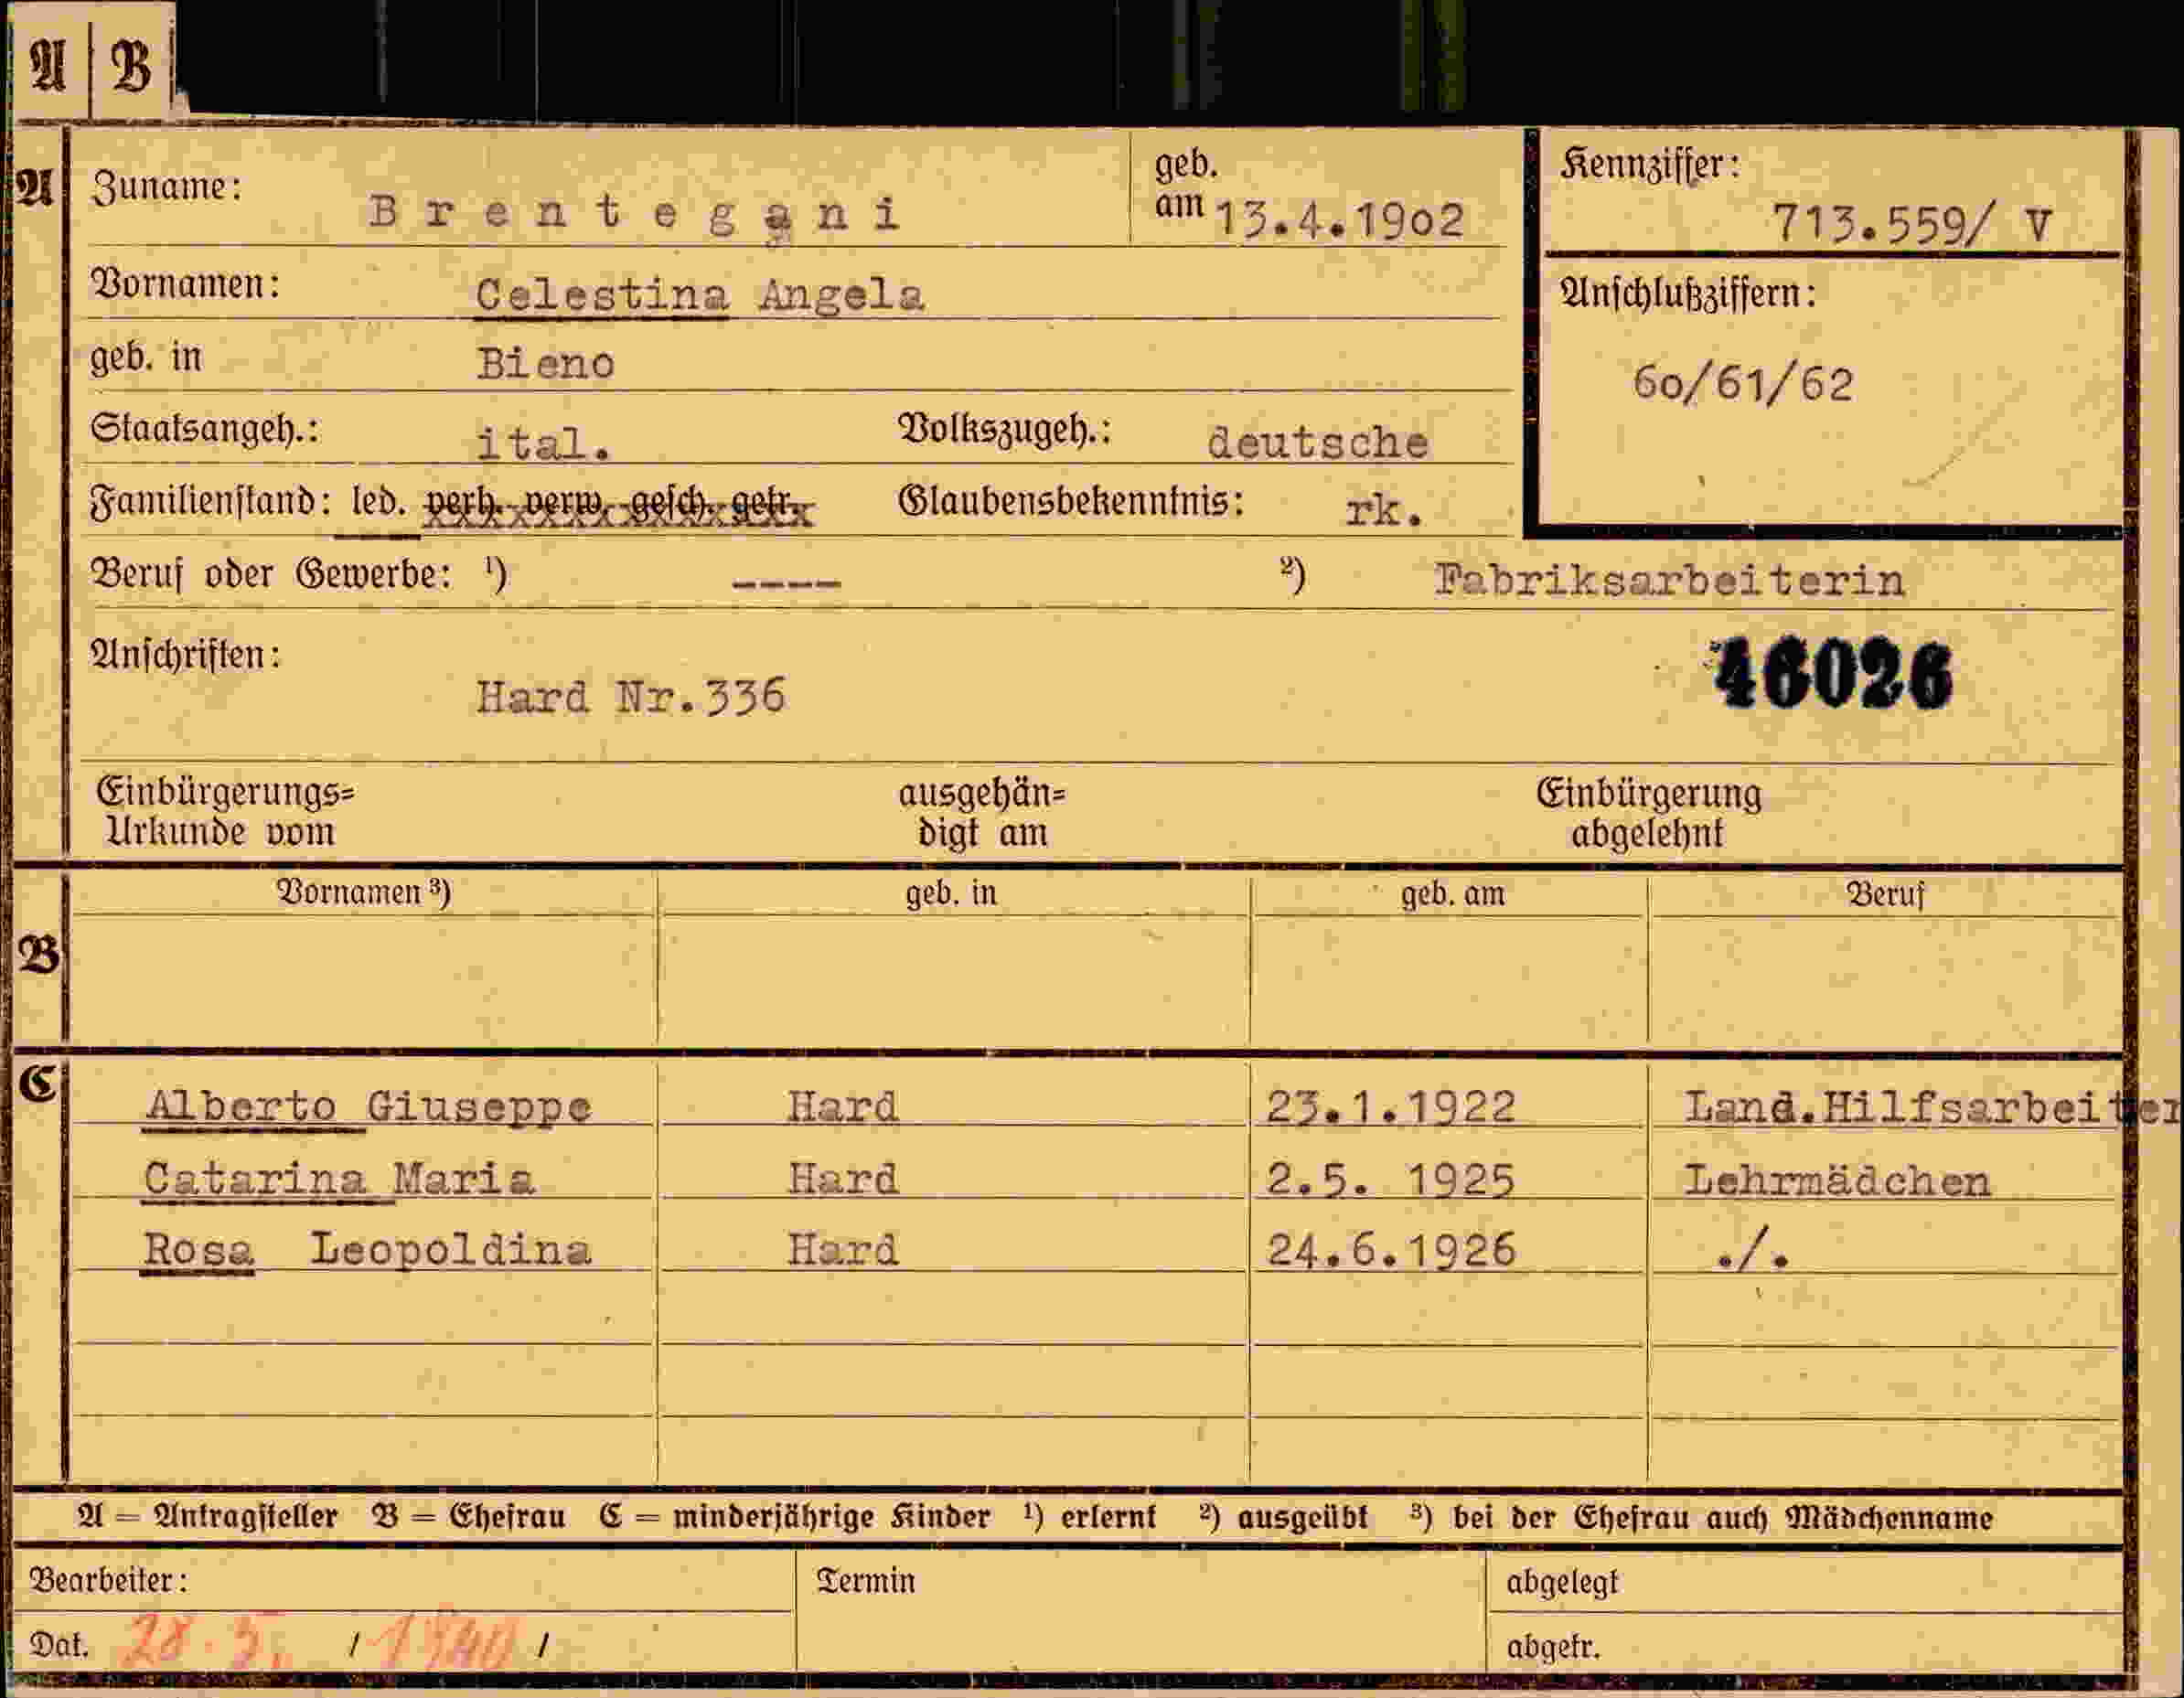 A B
A
Zuname: Brentegani geb. am 13.4.1902
Kennziffer: 713.559/ V
Vornamen: Celestina Angela
Anschlußziffern:
60/61/62
geb. in Bieno
Staatsangeh.: ital. Volkszugeh.: deutsche
Familienstand: led. verh. verw. gesch. getr. Glaubensbekenntnis: rk.
Beruf oder Gewerbe: ¹) ---- ²) Fabriksarbeiterin
Anschriften:
46026
Hard Nr.336
Einbürgerungs= ausgehän= Einbürgerung
Urkunde vom digt am abgelehnt
Vornamen ³) geb. in geb. am Beruf
B
C
Alberto Giuseppe Hard 23.1.1922 Land.Hilfsarbeiter
Catarina Maria Hard 2.5. 1925 Lehrmädchen
Rosa Leopoldina Hard 24.6.1926 ./.
A = Antragsteller B = Ehefrau C = minderjährige Kinder ¹) erlernt ²) ausgeübt ³) bei der Ehefrau auch Mädchenname
Bearbeiter: Termin abgelegt
Dat. 28.5. / 1940 / abgetr.